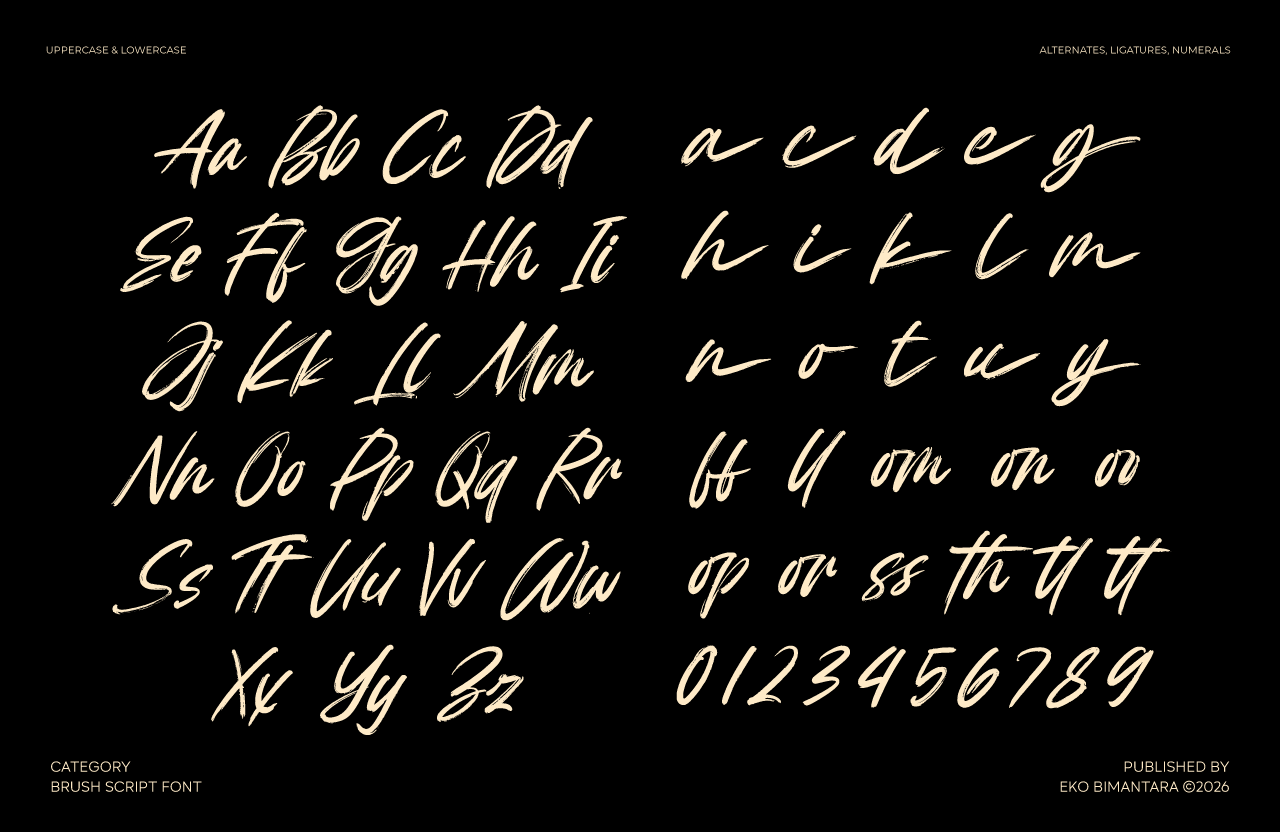 UPPERCASE & LOWERCASE
ALTERNATES, LIGATURES, NUMERALS
Aa Bb Cc Dd
Ee Ff Gg Hh Ii
Jj Kk Ll Mm
Nn Oo Pp Qq Rr
Ss Tt Uu Vv Ww
Xx Yy Zz
a c d e g
h i k l m
n o t u y
ff ll om on oo
op or ss th tl tt
0 1 2 3 4 5 6 7 8 9
CATEGORY
BRUSH SCRIPT FONT
PUBLISHED BY
EKO BIMANTARA ©2026